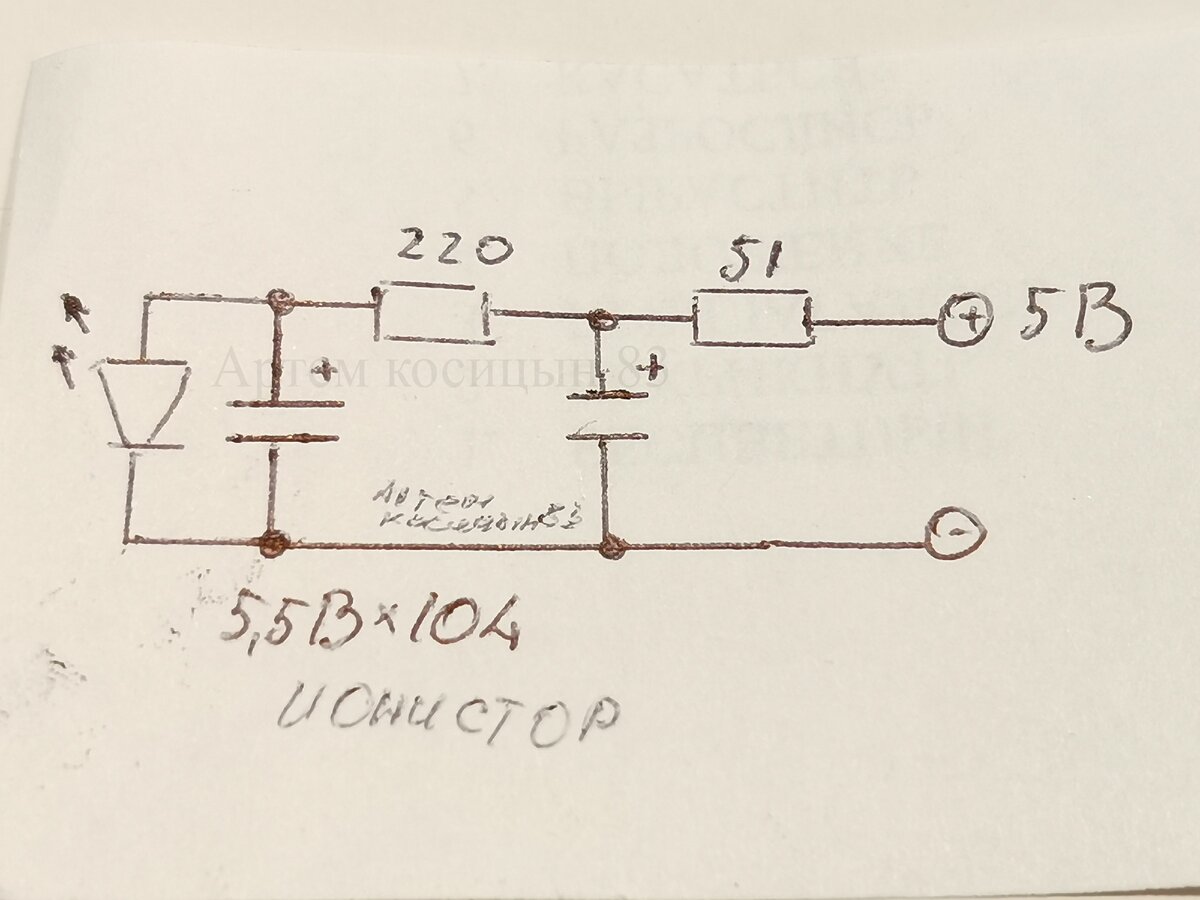 220
51
+ 5В
+
+
Артем косицын 83
Артем
косицын83
-
5,5В×104
ИОНИСТОР